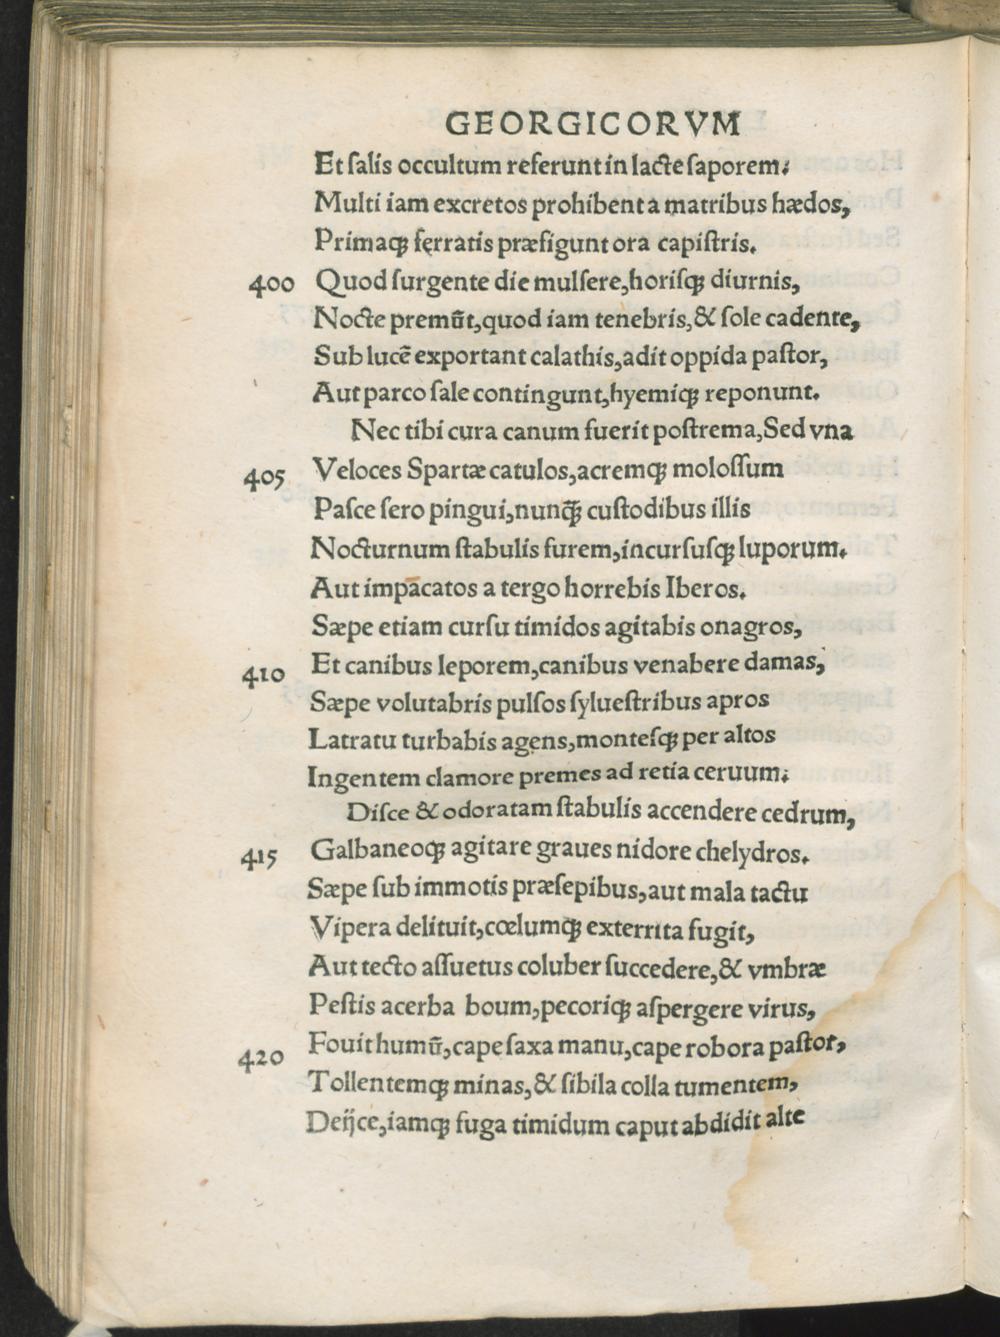 GEORGICORVM
Et ſalis occultum referunt in lacte ſaporem;
Multi iam excretos prohibent a matribus hædos,
Primaqꝫ ferratis præfigunt ora capiſtris.
400 Quod ſurgente die mulſere, horiſqꝫ diurnis,
Nocte premūt, quod iam tenebris, & ſole cadente,
Sub lucē exportant calathis, adit oppida paſtor,
Aut parco ſale contingunt, hyemiqꝫ reponunt.
Nec tibi cura canum fuerit poſtrema, Sed vna
405 Veloces Spartæ catulos, acremqꝫ moloſſum
Paſce ſero pingui, nunq̄ꝫ cuſtodibus illis
Nocturnum ſtabulis furem, incurſuſqꝫ luporum.
Aut impacatos a tergo horrebis Iberos.
Sæpe etiam curſu timidos agitabis onagros,
410 Et canibus leporem, canibus venabere damas;
Sæpe volutabris pulſos ſylueſtribus apros
Latratu turbabis agens, monteſqꝫ per altos
Ingentem clamore premes ad retia ceruum;
Diſce & odoratam ſtabulis accendere cedrum,
415 Galbaneoqꝫ agitare graues nidore chelydros.
Sæpe ſub immotis præſepibus, aut mala tactu
Vipera delituit, cœlumqꝫ exterrita fugit,
Aut tecto aſſuetus coluber ſuccedere, & vmbræ
Peſtis acerba boum, pecoriqꝫ aſpergere virus,
420 Fouit humū, cape ſaxa manu, cape robora paſtor,
Tollentemqꝫ minas, & ſibila colla tumentem,
Deijce, iamqꝫ fuga timidum caput abdidit alte